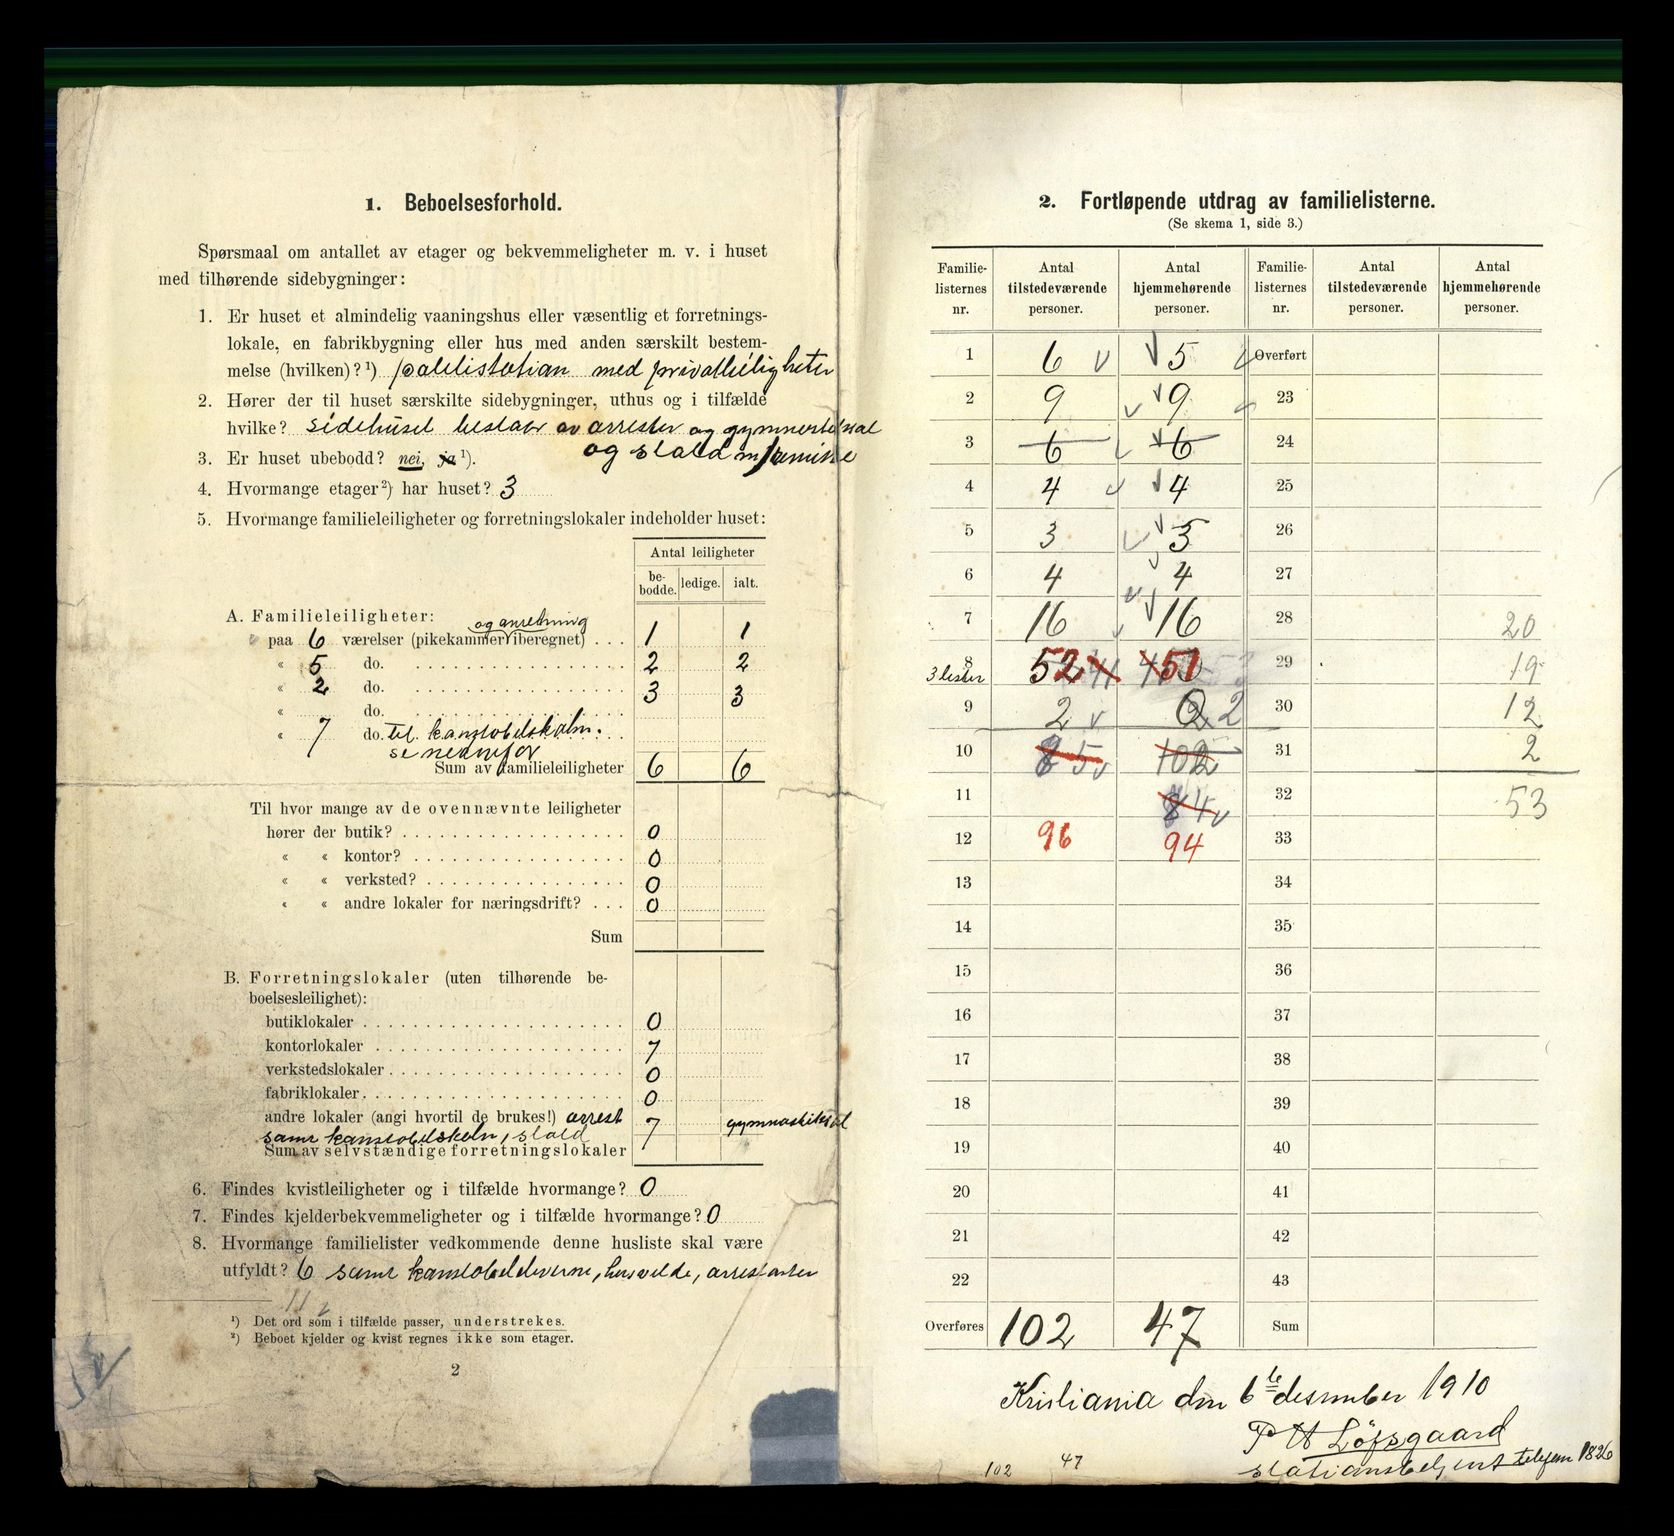 1. Beboelsesforhold.
Spørsmaal om antallet av etager og bekvemmeligheter m. v. i huset
med tilhørende sidebygninger:
1. Er huset et almindelig vaaningshus eller væsentlig et forretnings-
lokale, en fabrikbygning eller hus med anden særskilt bestem-
melse (hvilken)?¹) politistation med privatleiligheter
2. Hører der til huset særskilte sidebygninger, uthus og i tilfælde
hvilke? sidehuset bestaar av arrester og gymnastiksal
og stald m/remisse
3. Er huset ubebodd? nei, ja¹).
4. Hvormange etager²) har huset? 3
5. Hvormange familieleiligheter og forretningslokaler indeholder huset:
Antal leiligheter
be-bodde. ledige. ialt.
A. Familieleiligheter: og anretning
paa 6 værelser (pikekammer iberegnet) . . . 1 1
« 5 do. 2 2
« 2 do. 3 3
« do.
« 7 do. til konstabelskolen.
se nedenfor
Sum av familieleiligheter 6 6
Til hvor mange av de ovennævnte leiligheter
hører der butik? 0
« « kontor? 0
« « verksted? 0
« « andre lokaler for næringsdrift? . . . 0
Sum
B. Forretningslokaler (uten tilhørende be-
boelsesleilighet):
butiklokaler 0
kontorlokaler 7
verkstedslokaler 0
fabriklokaler 0
andre lokaler (angi hvortil de brukes!) arrest 7 gymnastiksal
samt konstabelskolen, stald
Sum av selvstændige forretningslokaler
6. Findes kvistleiligheter og i tilfælde hvormange? 0
7. Findes kjelderbekvemmeligheter og i tilfælde hvormange? 0
8. Hvormange familielister vedkommende denne husliste skal være
utfyldt? 6 samt konstabelelverne, husvilde, arrestanter
11
¹) Det ord som i tilfælde passer, understrekes.
²) Beboet kjelder og kvist regnes ikke som etager.
2
2. Fortløpende utdrag av familielisterne.
(Se skema 1, side 3.)
Familie-listernes nr. Antal tilstedeværende personer. Antal hjemmehørende personer. Familie-listernes nr. Antal tilstedeværende personer. Antal hjemmehørende personer.
1 6 5 Overført
2 9 9 23
3 6 6 24
4 4 4 25
5 3 5 26
6 4 4 27
7 16 16 28 20
8 3 lister 52 51 29 19
9 2 2 30 12
10 85 102 31 2
11 84 32 53
12 96 94 33
13 34
14 35
15 36
16 37
17 38
18 39
19 40
20 41
21 42
22 43
Overføres 102 47 Sum
Kristiania den 6te desember 1910
P H Löfsgaard
stationsbetjent telefon 1826
102 47